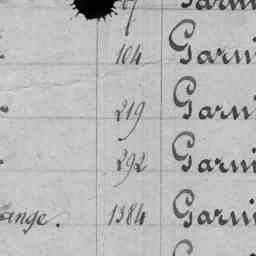 Garni
104 Garni
219 Garni
292 Garni
ange. 1384 Garni